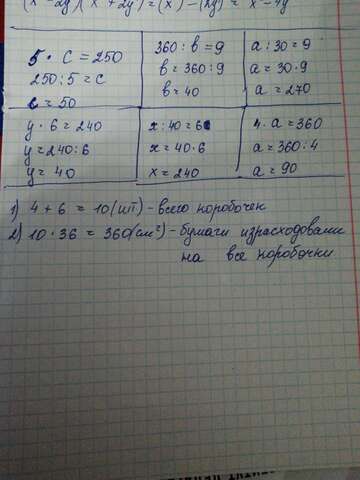 (x - 2y)(x + 2y) = (x²) - (2y)² = x² - 4y²
5 · c = 250
250 : 5 = c
c = 50
360 : b = 9
b = 360 : 9
b = 40
a : 30 = 9
a = 30 · 9
a = 270
y · 6 = 240
y = 240 : 6
y = 40
x : 40 = 6
x = 40 · 6
x = 240
4 · a = 360
a = 360 : 4
a = 90
1) 4 + 6 = 10 (шт) - всего коробочек
2) 10 · 36 = 360 (см²) - бумаги израсходовали
на все коробочки